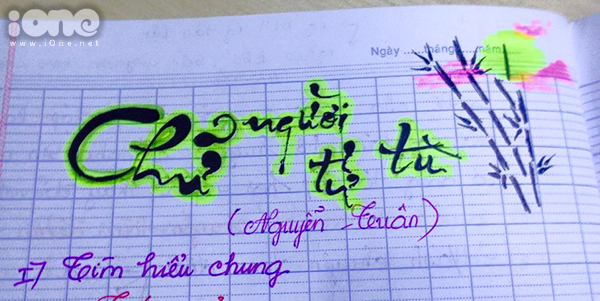 iOne
www.iOne.net
Ngày ......tháng......năm......
Chữ người tử tù
(Nguyễn - Tuân)
I/ Tìm hiểu chung